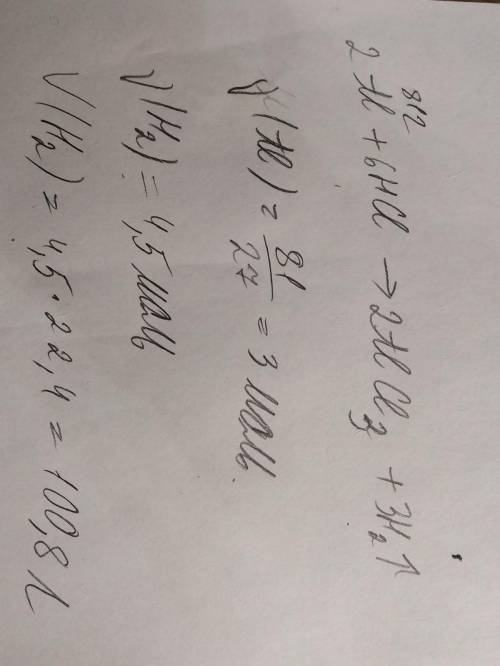 81г
2Al + 6HCl → 2AlCl₃ + 3H₂↑
ν(Al) = 81/27 = 3 моль
ν(H₂) = 4,5 моль
V(H₂) = 4,5 · 22,4 = 100,8 л